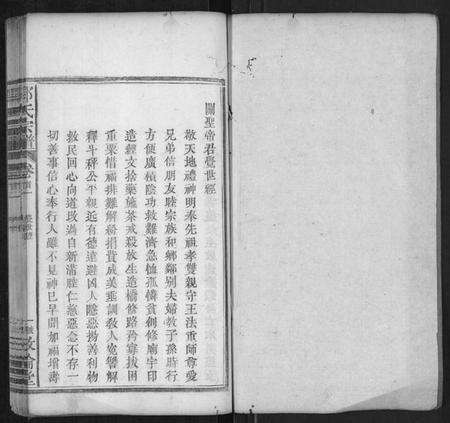 關聖帝君覺世經
敬天地禮神明奉先祖孝雙親守王法重師尊愛
兄弟信朋友睦宗族和鄉鄰別夫婦教子孫時行
方便廣積陰功救難濟急恤孤憐貧創修廟宇印
造經文捨藥施茶戒殺放生造橋修路矜寡拔困
重粟惜福排難解紛捐貲成美垂訓教人冤讐解
釋斗秤公平親近有德遠避凶人隱惡揚善利物
救民回心向道改過自新滿腔仁慈惡念不存一
切善事信心奉行人雖不見神已早聞加福增壽
氏宗譜
卷首
覺世經
倫堂